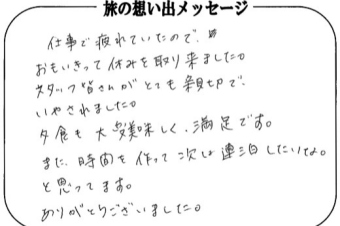 旅の想い出メッセージ
仕事で疲れていたので、
おもいきって休みを取り来ました。
スタッフ皆さんがとても親切で、
いやされました。
夕食も大変美味しく、満足です。
また、時間を作って次は連泊したいなぁ。
と思ってます。
ありがとうございました。